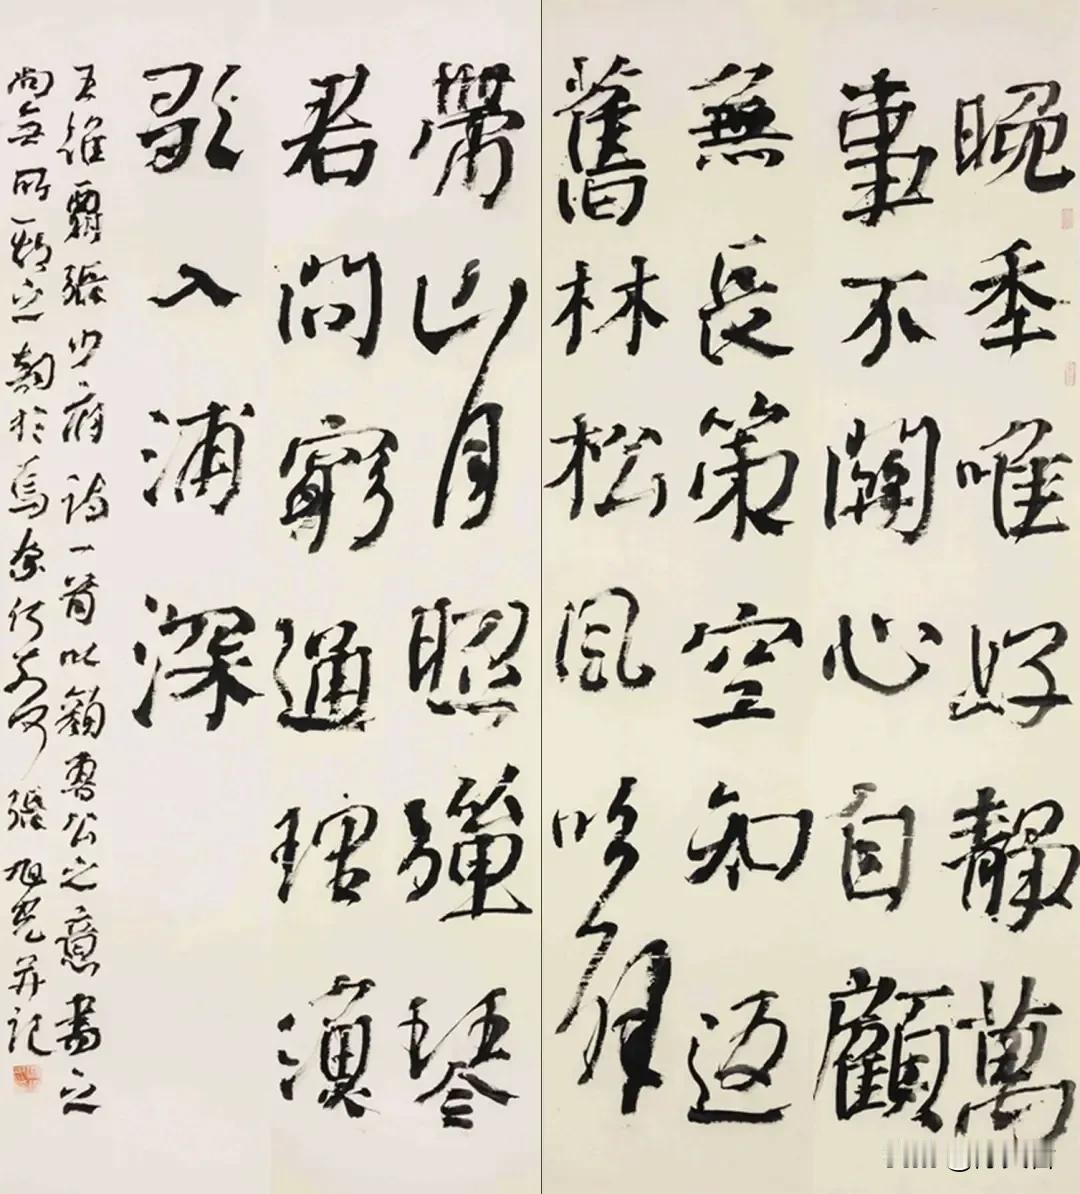 晚秊唯好靜萬
事不關心自顧
無長策空知返
舊林松風吹解
帶山月照彈琴
君問窮通理漁
歌入浦深
王維張少府詩一首以顏魯公之意書之
尚無所之韵於焉奈何奈何 張旭光并記